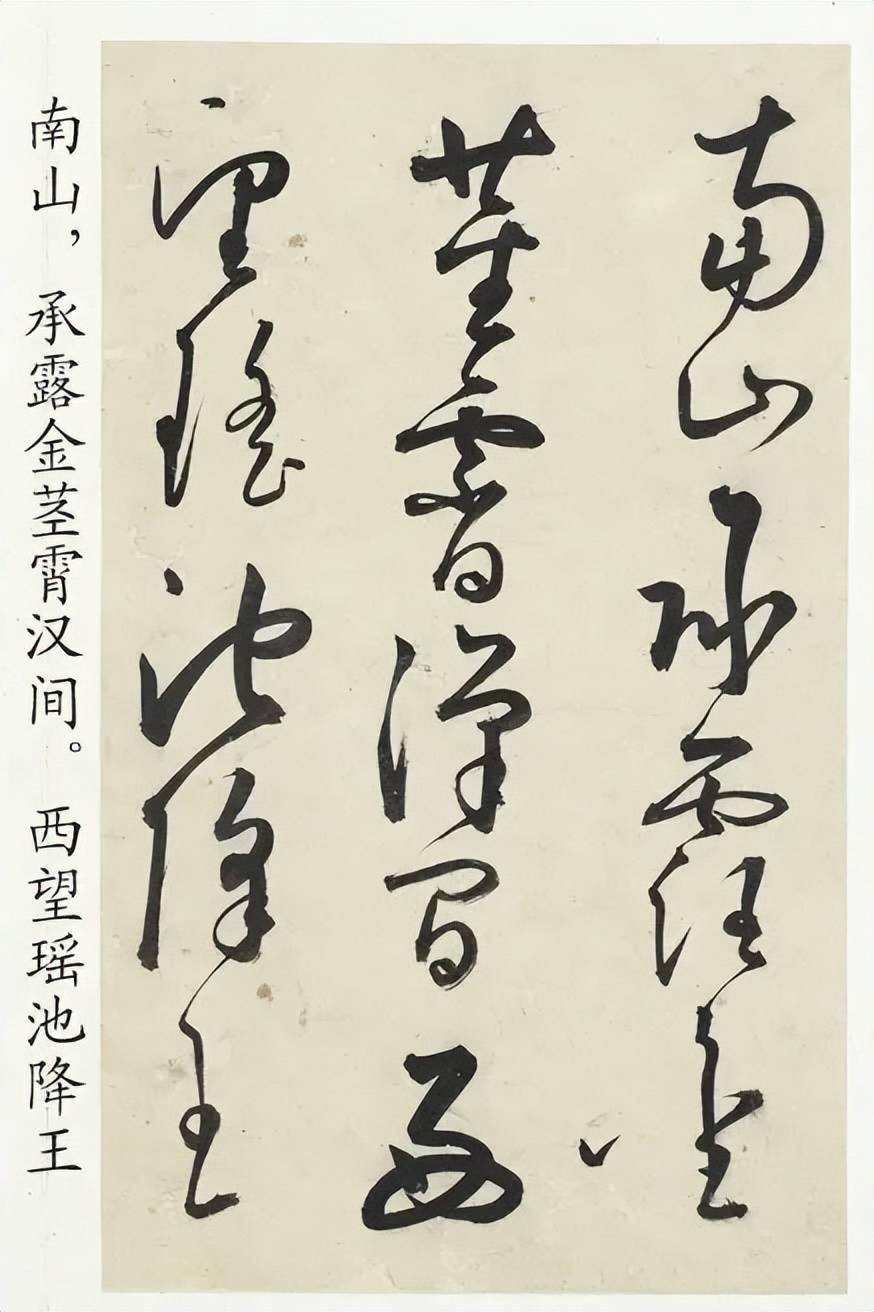 南山承露金
莖霄漢間西
望瑤池降王
南山，承露金茎霄汉间。西望瑶池降王